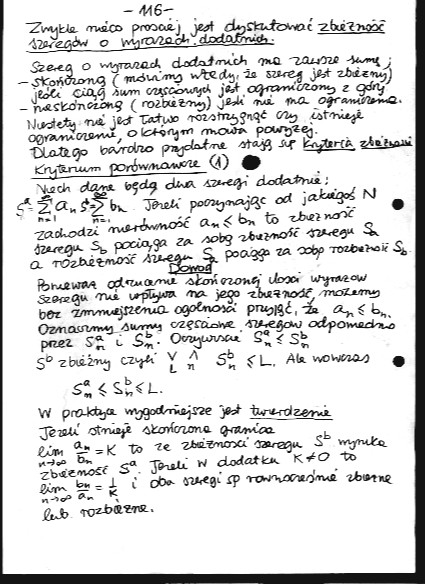 - 116 -
Zwykle nieco prościej jest dyskutować zbieżność
szeregów o wyrazach dodatnich.
Szereg o wyrazach dodatnich ma zawsze sumę;
- skończoną (mówimy wtedy, że szereg jest zbieżny)
jeśli ciąg sum częściowych jest ograniczony z góry
- nieskończoną (rozbieżny) jeśli nie ma ograniczenia.
Niestety nie jest łatwo rozstrzygnąć czy istnieje
ograniczenie, o którym mowa powyżej.
Dlatego bardzo przydatne stają się kryteria zbieżności
Kryterium porównawcze (1)
Niech dane będą dwa szeregi dodatnie:
S^a = ∑_{n=1}^∞ a_n S^b = ∑_{n=1}^∞ b_n. Jeżeli poczynając od jakiegoś N
zachodzi nierówność a_n ≤ b_n to zbieżność
szeregu S_b pociąga za sobą zbieżność szeregu S_a
a rozbieżność szeregu S_a pociąga za sobą rozbieżność S_b
Dowód
Ponieważ odrzucenie skończonej ilości wyrazów
szeregu nie wpływa na jego zbieżność, możemy
bez zmniejszenia ogólności przyjąć, że a_n ≤ b_n.
Oznaczmy sumy częściowe szeregów odpowiednio
przez S_n^a i S_n^b. Oczywiście S_n^a ≤ S_n^b
S^b zbieżny czyli ⋁_L ⋀_n S_n^b ≤ L. Ale wówczas
S_n^a ≤ S_n^b ≤ L.
W praktyce wygodniejsze jest twierdzenie
Jeżeli istnieje skończona granica
lim_{n→∞} a_n/b_n = K to ze zbieżności szeregu S^b wynika
zbieżność S^a. Jeżeli w dodatku K ≠ 0 to
lim_{n→∞} b_n/a_n = 1/K i oba szeregi są równocześnie zbieżne
lub rozbieżne.